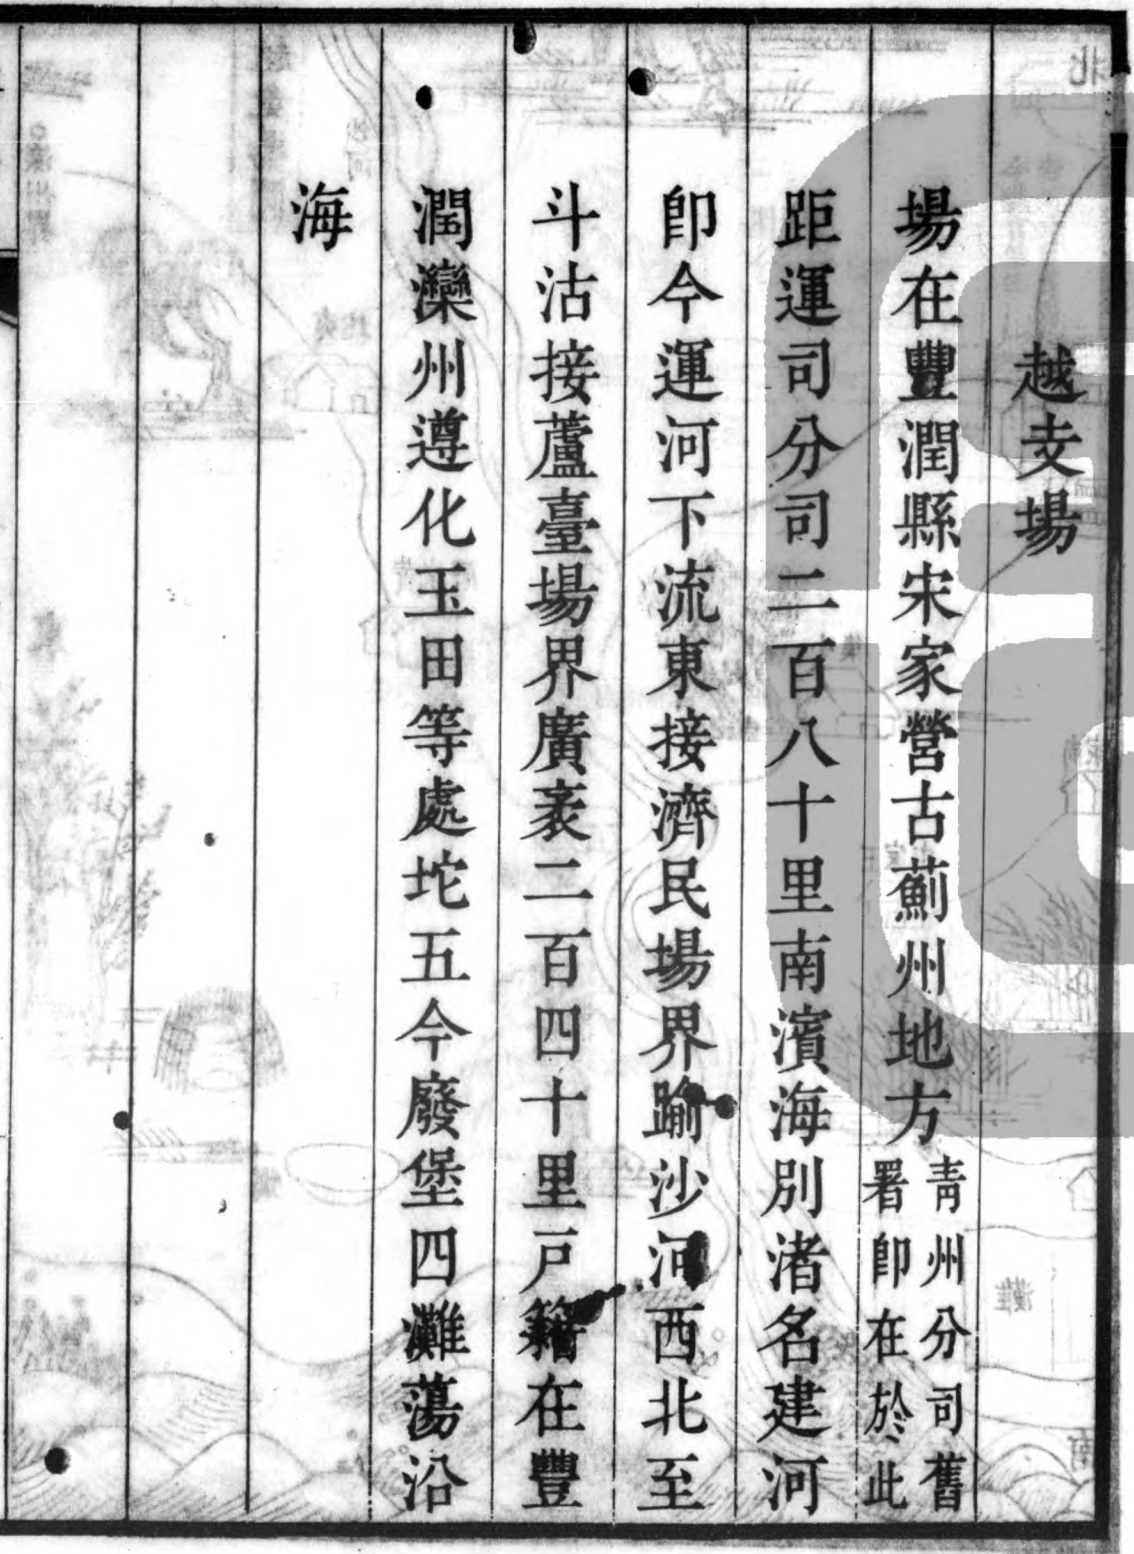 越支場
場在豐潤縣宋家營古薊州地方青州分司舊署卽在於此
距運司分司二百八十里南濱海別渚名建河
卽今運河下流東接濟民場界踰沙河西北至
斗沽接蘆臺場界廣袤二百四十里戸籍在豐
潤灤州遵化玉田等處坨五今廢堡四灘蕩沿
海